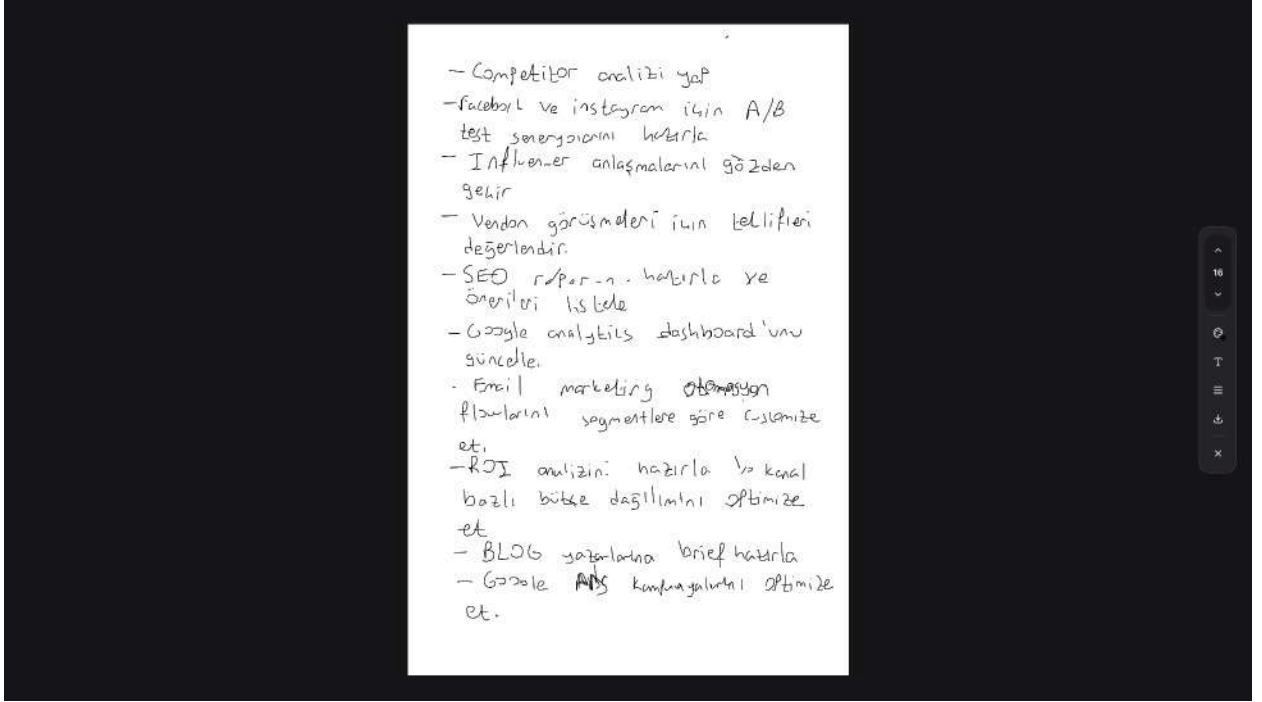 - Competitor analizi yap
- Facebook ve instagram için A/B
test seneryolarını hazırla
- Influencer anlaşmalarını gözden
geçir
- Vendor görüşmeleri için teklifleri
değerlendir.
- SEO raporunu hazırla ve
önerileri listele
- Google analytics dashboard'unu
güncelle.
- Email marketing otomasyon
flowlarını segmentlere göre customize
et.
- ROI analizini hazırla ve kanal
bazlı bütçe dağılımını optimize
et
- BLOG yazarlarına brief hazırla
- Google ADS kampanyalarını optimize
et.
16
T